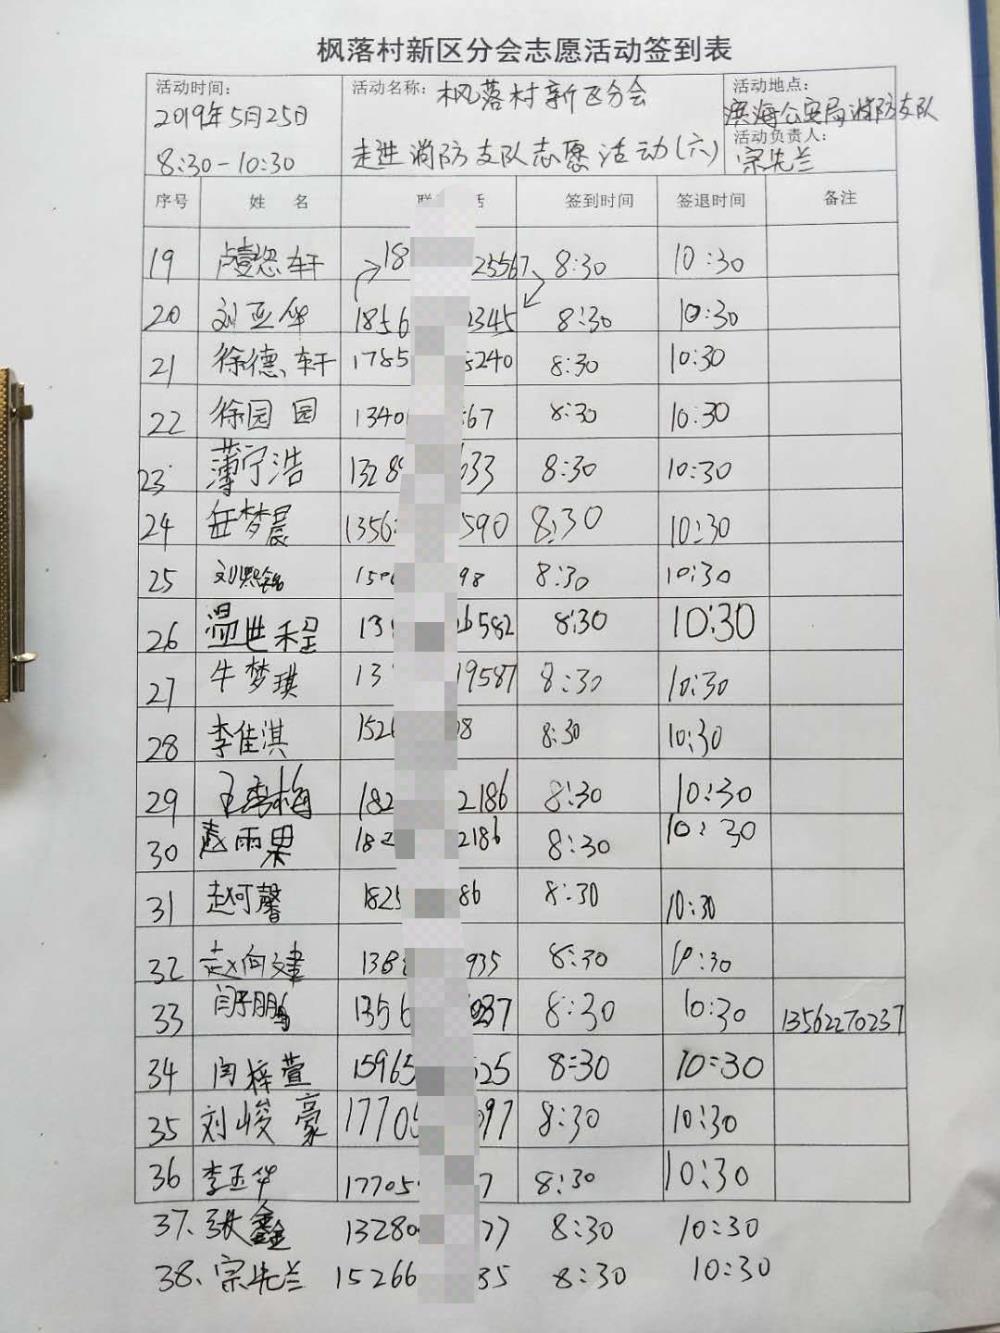 枫落村新区分会志愿活动签到表
活动时间: 活动名称: 枫落村新区分会 活动地点:
2019年5月25日 滨海公安局消防支队
8:30-10:30 走进消防支队志愿活动(六) 活动负责人: 宗先兰
序号 姓 名 联 话 签到时间 签退时间 备注
19 轩 18 23567 8:30 10:30
20 刘亚华 1856 2345 8:30 10:30
21 徐德轩 1785 5240 8:30 10:30
22 徐园园 1340 67 8:30 10:30
23 薄宁浩 1328 633 8:30 10:30
24 任梦晨 1356 590 8:30 10:30
25 刘熙铭 150 98 8:30 10:30
26 温世程 13 26582 8:30 10:30
27 牛梦琪 13 19587 8:30 10:30
28 李佳淇 1526 08 8:30 10:30
29 王秀梅 182 2186 8:30 10:30
30 赵雨果 182 2186 8:30 10:30
31 赵珂馨 1825 86 8:30 10:30
32 赵向建 1368 935 8:30 10:30
33 闫子鹏 1356 0237 8:30 10:30 13562270237
34 闫梓萱 15965 525 8:30 10:30
35 刘峻豪 17705 097 8:30 10:30
36 李玉华 17705 7 8:30 10:30
37、张鑫 13280 77 8:30 10:30
38、宗先兰 15266 35 8:30 10:30